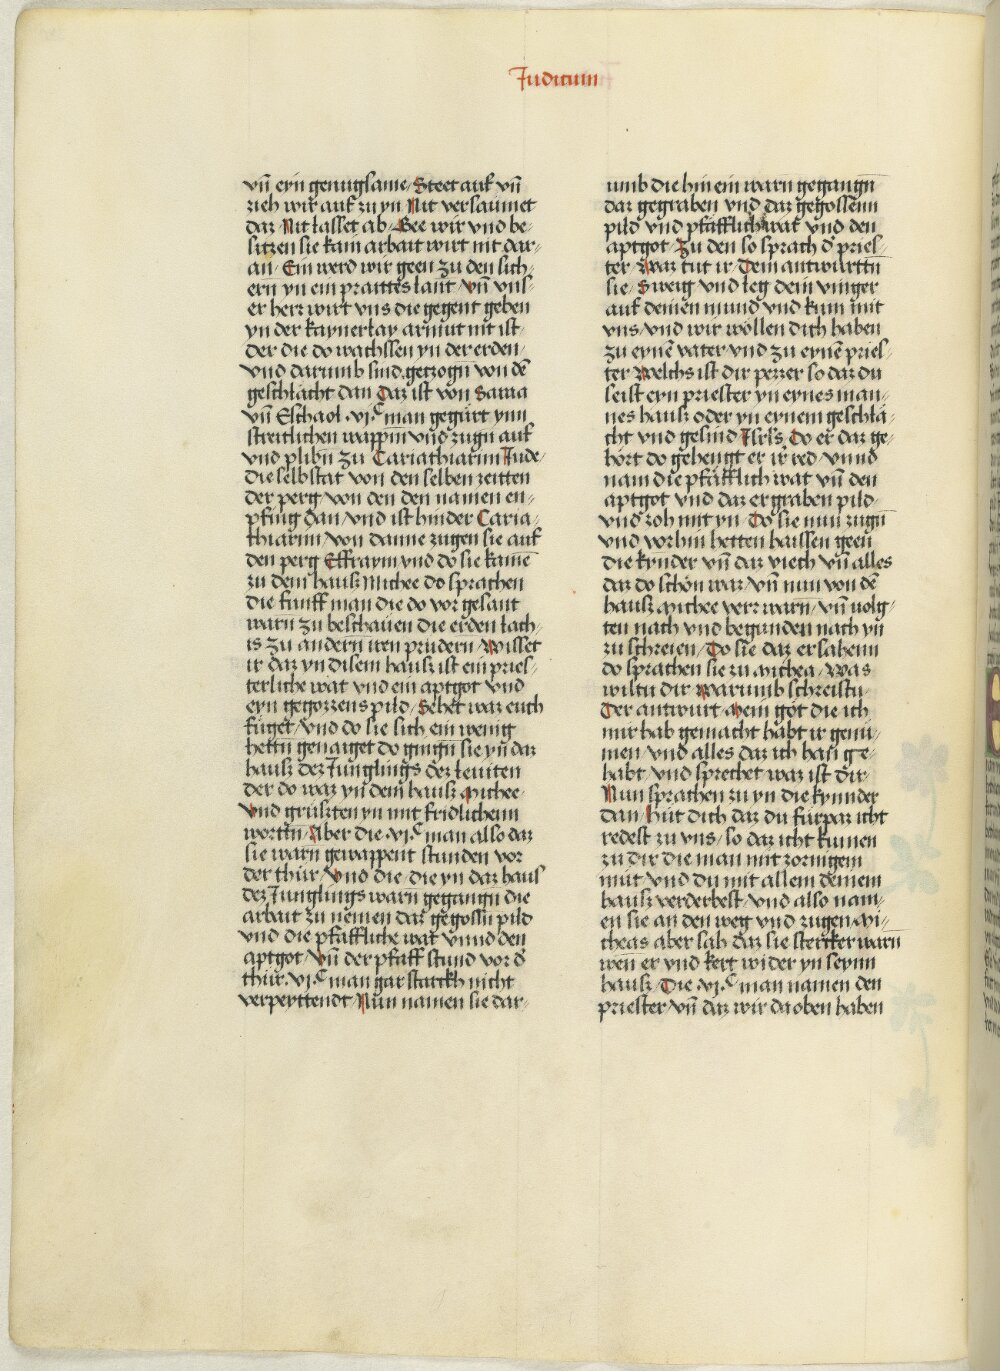 Judicum
vn̄ eyn genugsame / Steet auf vn̄
zieh wir auf zu yn Nit versaümet
daz Nit lasset ab / Gee wir vnd be⸗
sitzen sie kain arbait wirt nit dar⸗
an / Ein werd wir geen zu den sich⸗
ern yn ein praittes lant / vn̄ vns⸗
er herr wirt vns die gegent geben
yn der kaynerlay armut nit ist⸗
der die do wachssen yn der erden /
vnd darumb sind getzogn̄ von dē
geschlächt dan Daz ist von Saraa
vn̄ Eschaol .vj.c man gegürt ynn
streitlichen wappn̄ vnd zugn̄ auf
vnd plibn̄ zu Cariathiarim Jude /
die selbstat von den selben zeitten
der perg von den den namen en⸗
pfing dan / vnd ist hinder Caria⸗
thiarim / von danne zugen sie auf
den perg Effraym vnd do sie kamē
zu dem hauß Mithee do sprachen
die funff man die do vor gesant
warn zu beschaüen die erden lach⸗
is zu andern iren prüdern / Wisset
ir daz yn disem hauß ist ein pries⸗
terliche wat vnd ein aptgot vnd
eyn gegozzens pild / Sehet waz euch
füget / vnd do sie sich ein wenig
hettn̄ genaiget do gingn̄ sie yn̄ daz
hauß dez Junglings dez leuiten
der do waz yn̄ dem hauß Mithee
Vnd grüßten yn mit fridlichenn
wortn̄ / Aber die .vj.c man also daz
sie warn gewappent stunden vor
der thür / Vnd die / die yn daz haus
dez Junglings warn gegangn̄ die
arbait zu nemen daz gegossn̄ pild
vnd die pfaffliche wat vnnd den
aptgot / Vn̄ der pfaff stund vor d̄
thür .vj.c man gar starckh nicht
verpeyttendt / Nun namen sie dar⸗
umb die hin ein warn gegangn̄
daz gegraben vnd daz gegossenn
pild vnd pfafflich wat vnd den
aptgot / Zu den so sprach d̄ pries⸗
ter / Waz tut ir / Dem antwurttn̄
sie / Sweig vnd leg dein vinger
auf deinen mund vnd kum mit
vns / vnd wir wöllen dich haben
zu eynē vater vnd zu eynē pries⸗
ter Welchs ist dir pezzer so daz du
seist eyn priester yn eynes man⸗
nes hauß oder yn eynem geschlä⸗
cht vnd gesind Jsrl's Do er daz ge⸗
hört do gehengt er ir red / vnnd
nam die pfäfflich wat vn̄ den
aptgot vnd daz ergraben pild⸗
vnd zoh mit yn / Do sie nun zugn̄
vnd vorhin hetten haissen geen
die kynder vn̄ daz viech vn̄ alles
daz do schön war / vn̄ nun von dē
hauß Mithee verr warn / vn̄ uolg⸗
ten nach vnd begunden nach yn
zu schreien / Do sie daz ersahenn
do sprachen sie zu Mithea / Was
wiltu dir Warumb schreistu⸗
Der antwurt Mein göt die ich
mir hab gemacht habt ir genu⸗
men / vnd alles daz ich han ge⸗
habt / vnd sprechet waz ist dir
Nun sprachen zu yn die kynnder
dan / Hüt dich daz du fürpaz icht
redest zu vns / so daz icht kumen
zu dir die man mit zornigem
müt / vnd du mit allem deinem
hauß verderbest / vnd also nam⸗
en sie an den weg vnd zugen Mi⸗
theas aber sah daz sie stercker warn
wen er vnd kert wider yn seynn
hauß / Die .vj.c man namen den
priester / vn̄ daz wir da oben haben